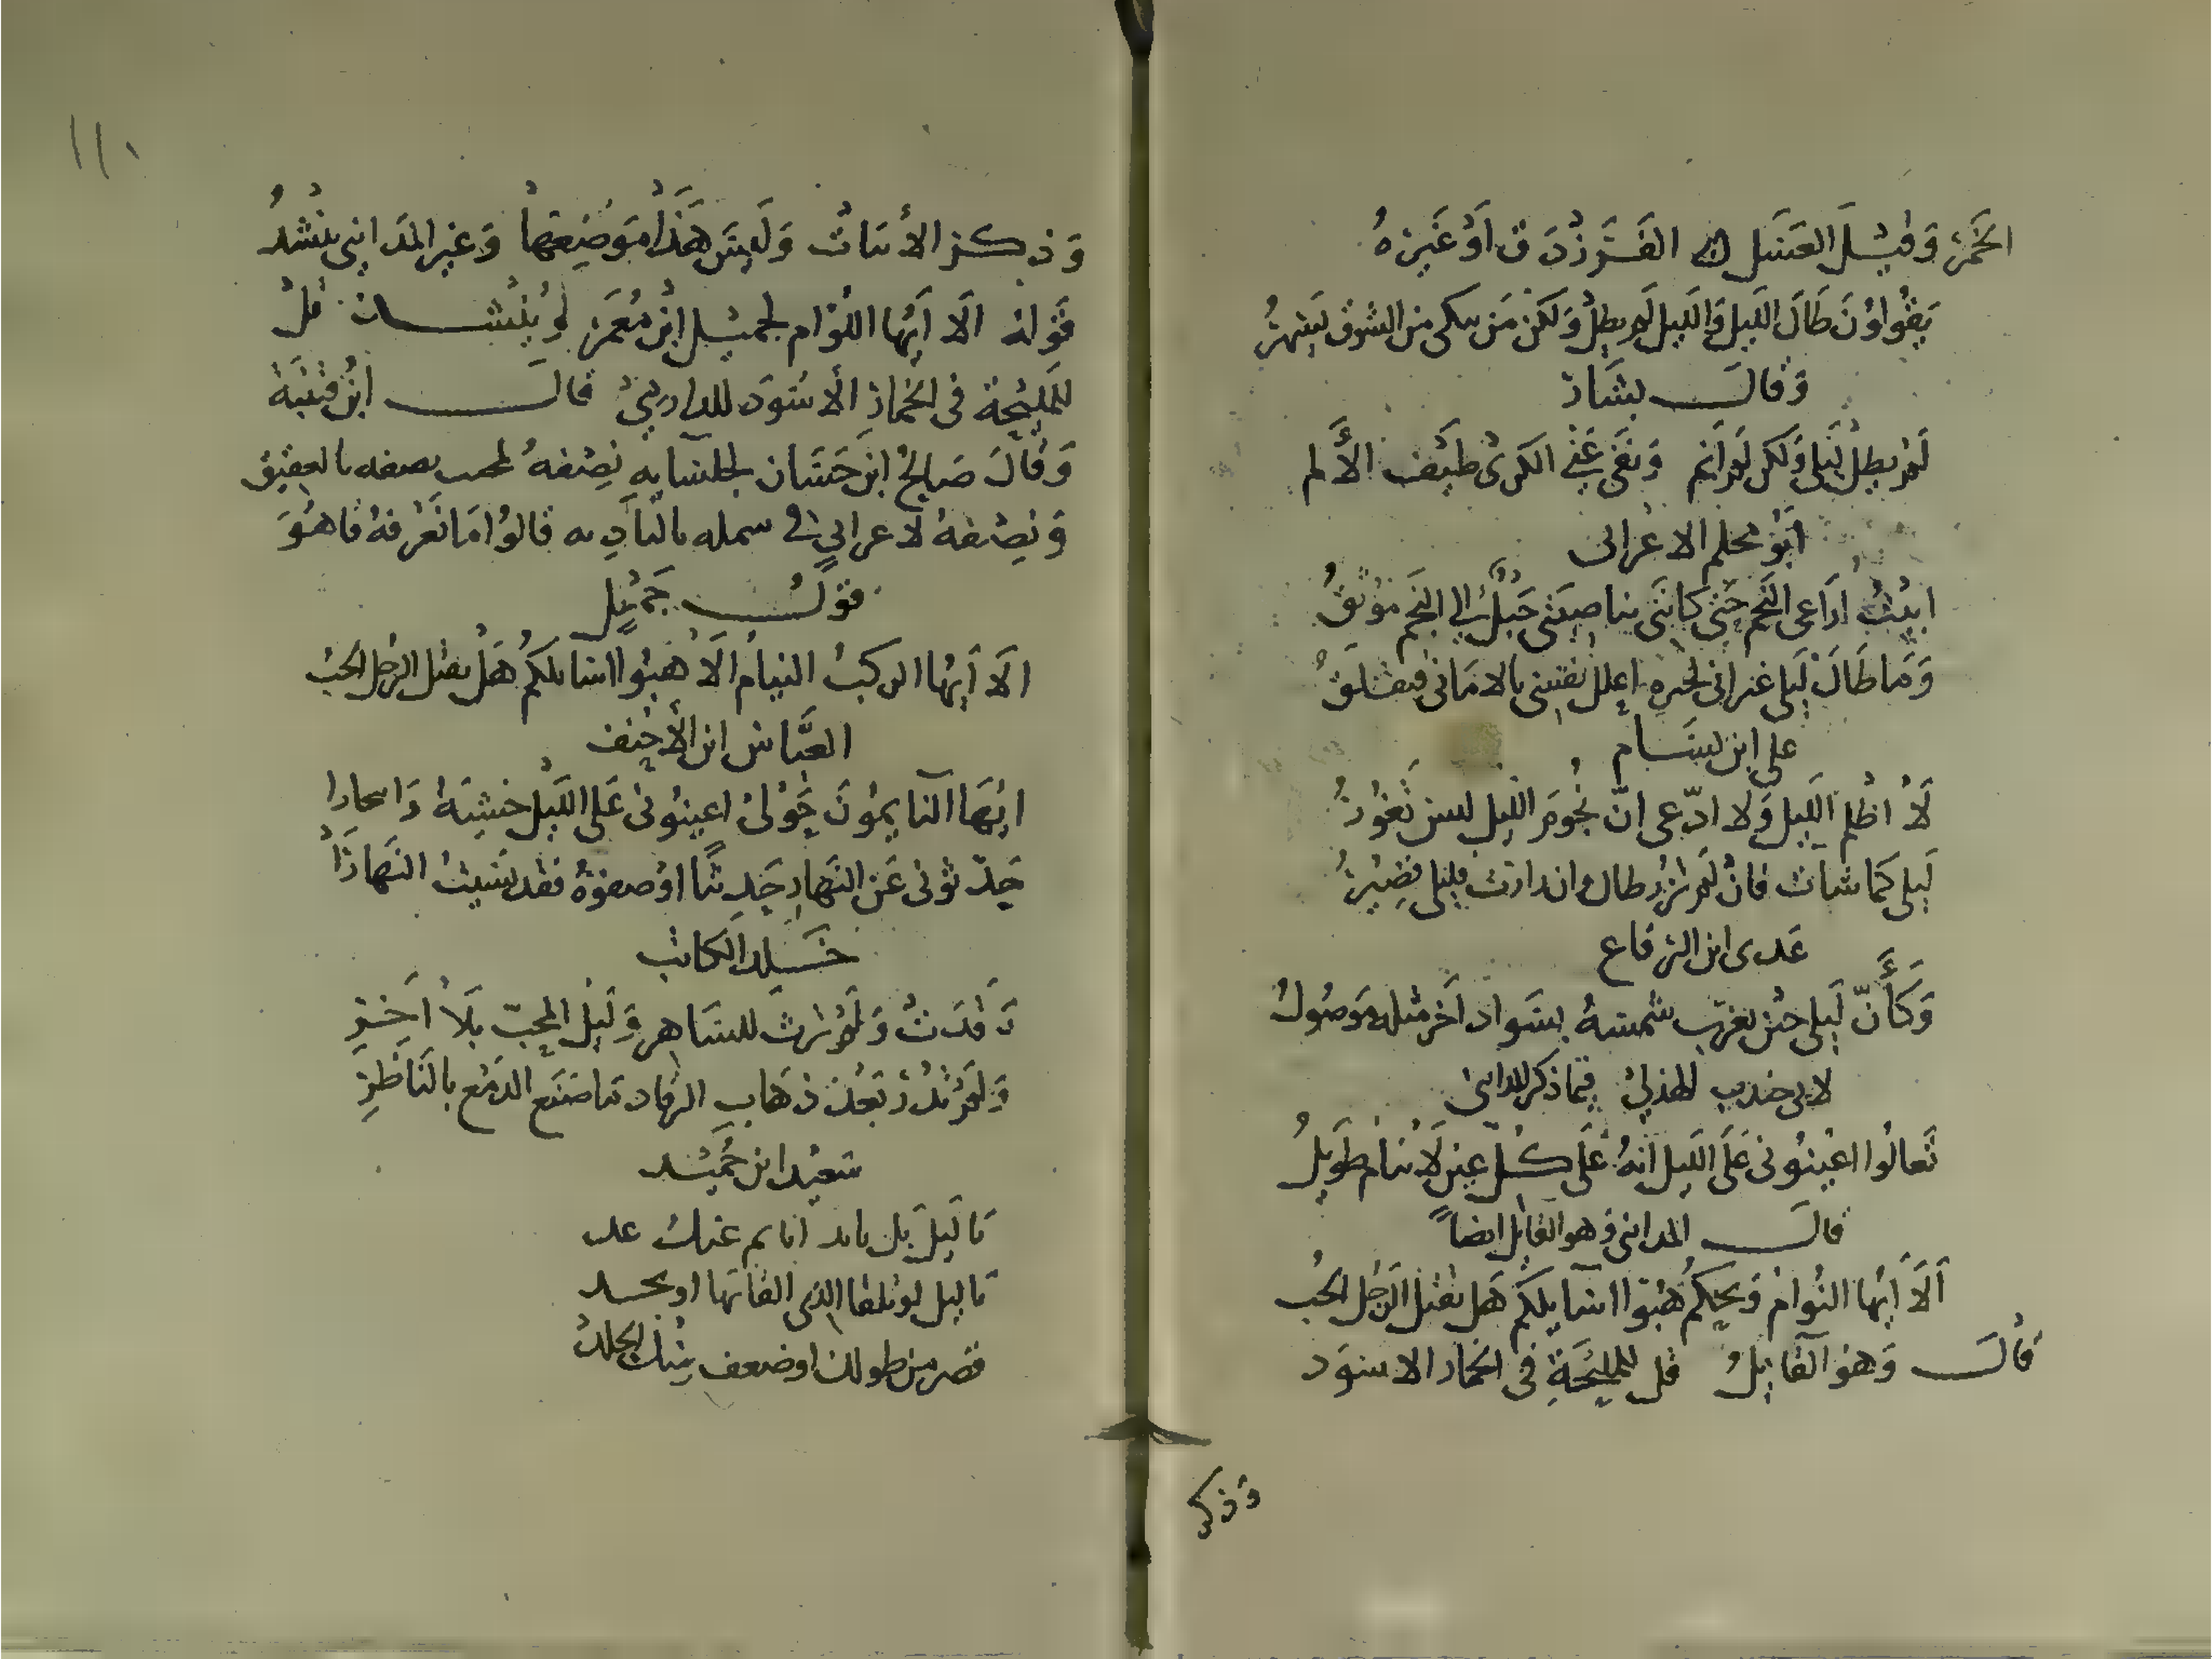 الخَمر وَقِيْلَ العَسَل الفَرَزْدَق اَوْ غَيره
يَقُولُوْنَ طَالَ اللَّيل وَاللَّيل لَم يطِلْ وَلَكن مَن يبكى من الشوق يَسهرُ
وَقالَ بشَار
لَمْ يطل لَيلى وَلكن لَم اَنَم وَنَفَى عَنّى الكرىْ طَيف الأَلم
اَبُو محلم الاعرابى
ابِيْتُ اُرَاعى النَّجم حَتى كانّنى بناصِيَتى حَبْلٌ الى النجم مُوْثقُ
وَمَا طَالَ لَيلى غير انى اعلل نفسى بالامَانى فتقلقُ
على ابن بسَام
لاَ اظلم اللَّيل وَلا ادّعى انّ نُجُومَ اللّيل ليس تَغُوْرُ
لَيلى كَما شاَت فانْ لَم تزر طال وان زارت فليلى قصِيْرُ
عَدى ابن الرقاع
وَكَأَنّ لَيلى حين تغرّب شمسهُ بسَواد آخر مثله مَوصُولُ
لابى جندب الهذلىْ فيمَا ذكر المداينى
تَعالُوا اعِيْنُونى عَلَى اللَّيل انهُ عَلَى كُلّ عين لاَ تنام طَويلُ
قالَ المداينى وَهو القايل ايضاً
اَلاَ اَيُها النُوامْ وَيحكمُ هُبّوا اسَايلكم هَل يقتل الرجل الحُب
قالَ وَهوَ القَايلُ قل للمليْحَةِ فى الخمار الاسوَد
وَذكر
١١٠
وَذكر الأبيَاتْ وَلَيسَ هَذَا مَوضِعهَا وَغير المدَاينى ينْشدُ
قَوله الَا اَيُها النُوّام لجميْل ابن مَعمَر وَيُنْشد قلْ
للمليْحَة فى الخمارِ الأسْوَد للدارمىْ قالَ ابنُ قتيْبَة
وَقالَ صَالِحْ ابن حَسَان لجلسَايهِ نِصْفهُ لمحب يصفه بالعقيق
وَنِصْفهُ لاعرابىٍ فى شمله بالبَادِيه قالوُا مَا نَعْرفهُ فاهُوَ
قوْلُ جَمِيْل
الَا اَيهُا الركبُ النيامُ الَا هبُوا اسايلكمُ هَلْ يقتل الرجل الحُبْ
العبَّاس ابن الأحنف
ايهَا النَايمُونَ حَوْلىْ اعينُونى عَلى اللّيْل حسْبَةً وَاتجارا
حَدّثونى عَن النَهارِ حَدِيثاً اوْصفوْهُ فقد نسَيتُ النَهارَاْ
خَلد الكاتب
رَقدَتْ وَلَم تَرث للسَاهر وَليْل المحِبّ بلاَ اَخِرِ
وَلَم تدْر بَعْدَ ذهَاب الرقاد مَا صَنَع الدمْع بالنَاظِرِ
سَعيْد ابن حُميْد
يَا لَيل بل يا نايم عنك غد
يَا ليل لو تلقا الذى القا بَها او تجد
قصر من طولك او ضعف منك الجلدْ